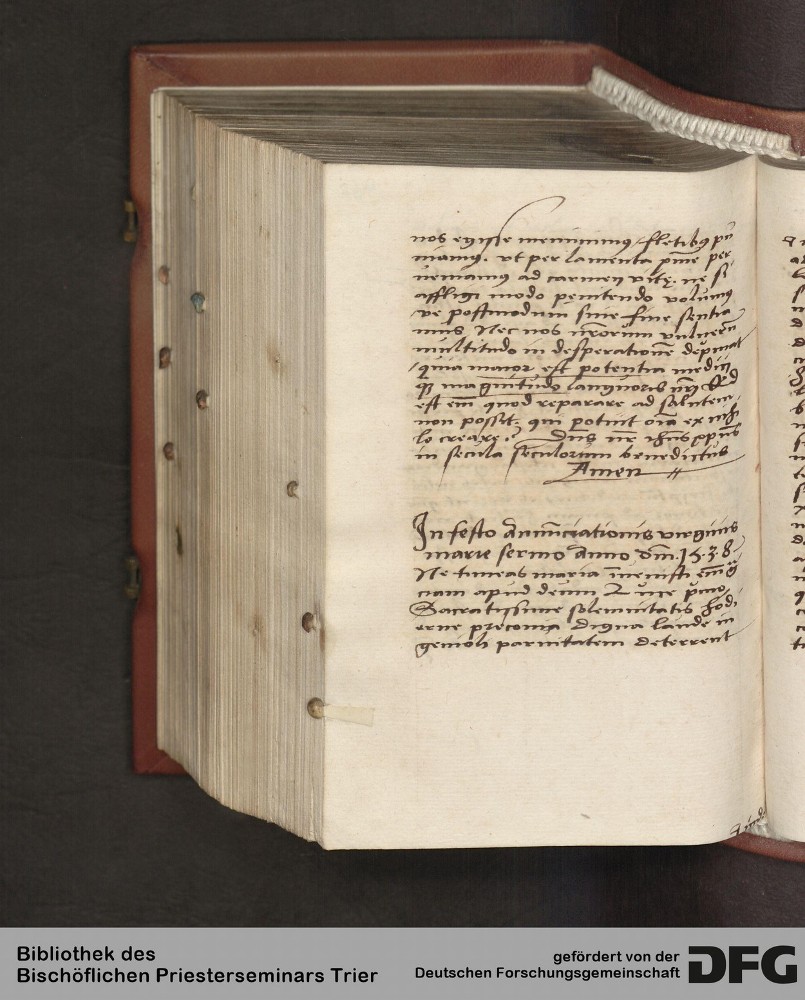 nos egisse meminimus / fletibus pu
niamus. vt per lamenta pnie per
ueniamus ad carmen vitę. ne si
affligi modo penitendo volumus
ve postmodum sine fine sentia
mus Nec nos nrorum vulnerum
multitudo in desperationē deponat
quia maior est potentia medici
qz magnitudo languoris nri Quid
est em quod reparare ad salutem
non possit, qui potuit oīa ex nihi
lo creare. Dns nr
in secula seculorum benedictus
Amen
In festo Annūciationis virginis
marie sermo anno dm. 1538
Ne timeas maria inuenisti em grā
ciam apud deum Luce pmo
Sacratissime solemnitatis hodi
erne preconia digna laude in
genioli paruitatem deterrent
Bibliothek des
Bischöflichen Priesterseminars Trier
gefördert von der
Deutschen Forschungsgemeinschaft
DFG